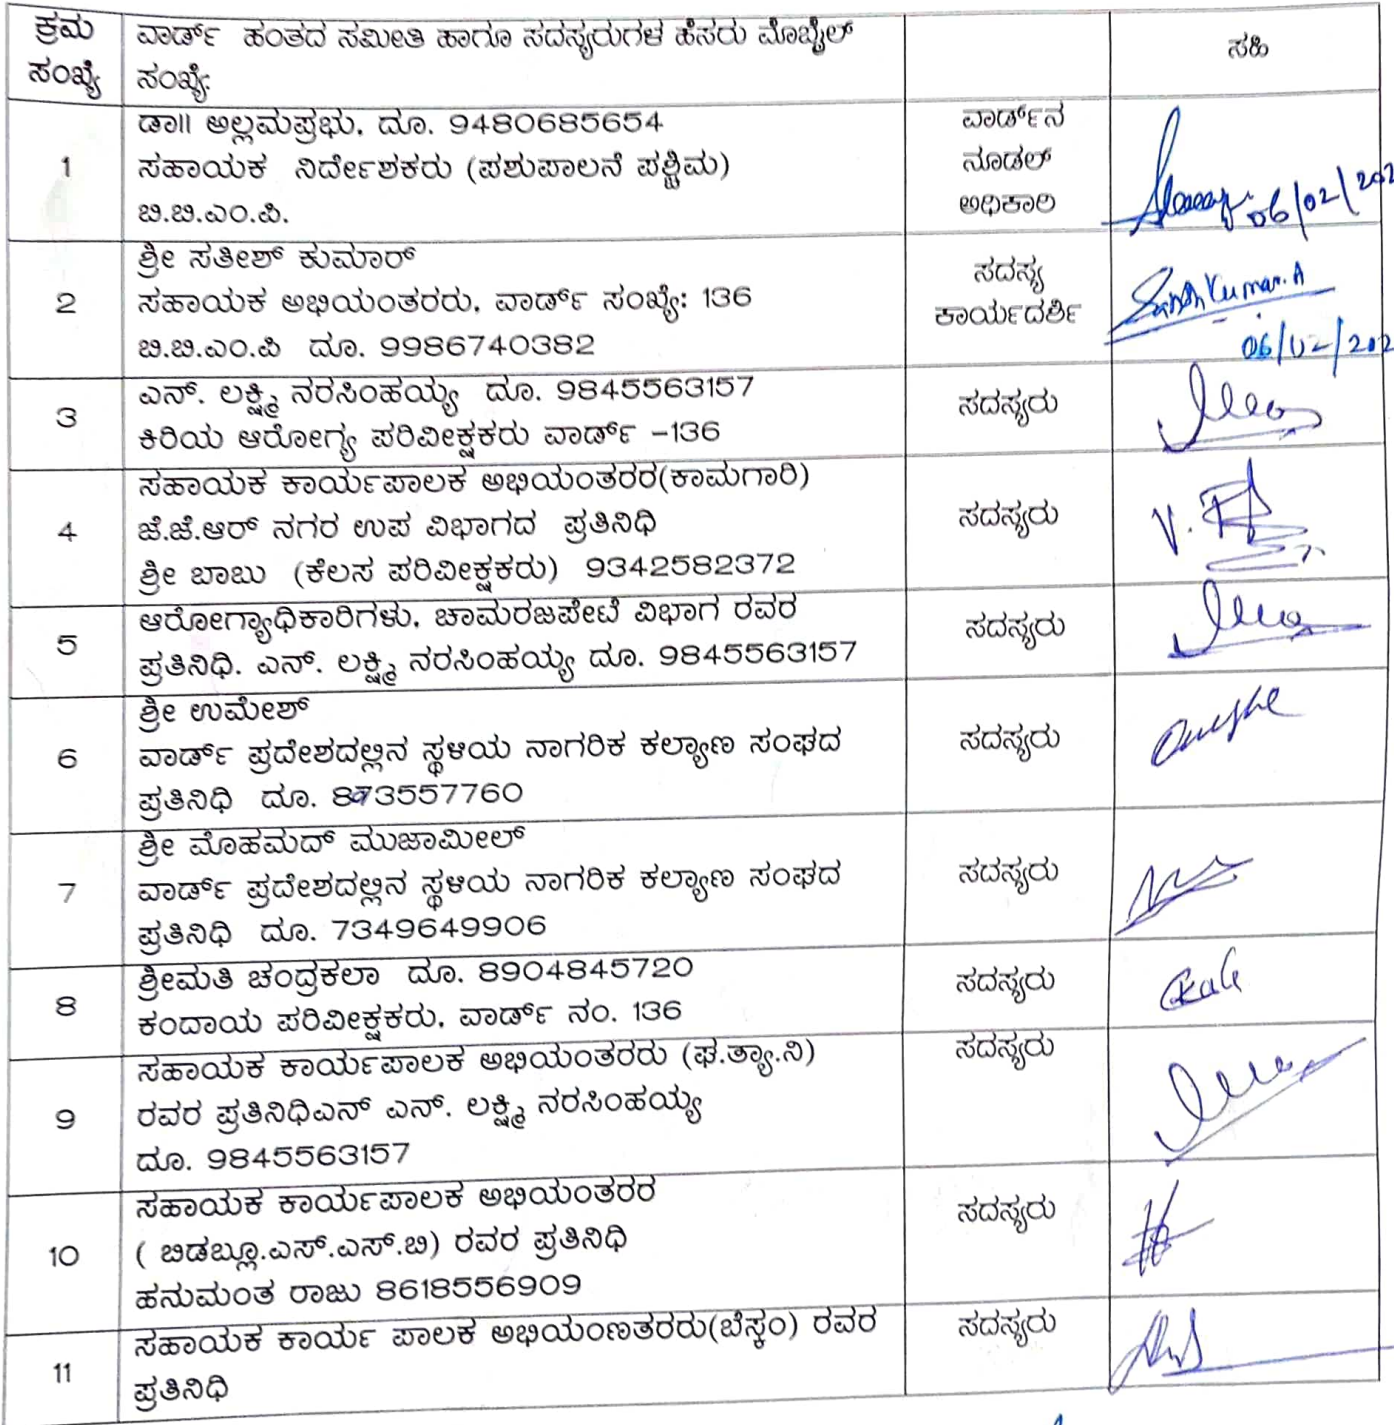 ಕ್ರಮ ಸಂಖ್ಯೆ
ವಾರ್ಡ್ ಹಂತದ ಸಮೀತಿ ಹಾಗೂ ಸದಸ್ಯರುಗಳ ಹೆಸರು ಮೊಬೈಲ್
ಸಂಖ್ಯೆ:
ಸಹಿ
1
ಡಾ|| ಅಲ್ಲಮಪ್ರಭು, ದೂ. 9480685654
ಸಹಾಯಕ ನಿರ್ದೇಶಕರು (ಪಶುಪಾಲನೆ ಪಶ್ಚಿಮ)
ಬಿ.ಬಿ.ಎಂ.ಪಿ.
ವಾರ್ಡ್‌ನ
ನೂಡಲ್
ಅಧಿಕಾರಿ
06/02/202
2
ಶ್ರೀ ಸತೀಶ್ ಕುಮಾರ್
ಸಹಾಯಕ ಅಭಿಯಂತರರು, ವಾರ್ಡ್ ಸಂಖ್ಯೆ: 136
ಬಿ.ಬಿ.ಎಂ.ಪಿ ದೂ. 9986740382
ಸದಸ್ಯ
ಕಾರ್ಯದರ್ಶಿ
Kumar.A
06/02/202
3
ಎನ್. ಲಕ್ಷ್ಮಿ ನರಸಿಂಹಯ್ಯ ದೂ. 9845563157
ಕಿರಿಯ ಆರೋಗ್ಯ ಪರಿವೀಕ್ಷಕರು ವಾರ್ಡ್ –136
ಸದಸ್ಯರು
4
ಸಹಾಯಕ ಕಾರ್ಯಪಾಲಕ ಅಭಿಯಂತರರ(ಕಾಮಗಾರಿ)
ಜೆ.ಜೆ.ಆರ್ ನಗರ ಉಪ ವಿಭಾಗದ ಪ್ರತಿನಿಧಿ
ಶ್ರೀ ಬಾಬು (ಕೆಲಸ ಪರಿವೀಕ್ಷಕರು) 9342582372
ಸದಸ್ಯರು
5
ಆರೋಗ್ಯಾಧಿಕಾರಿಗಳು, ಚಾಮರಜಪೇಟೆ ವಿಭಾಗ ರವರ
ಪ್ರತಿನಿಧಿ. ಎನ್. ಲಕ್ಷ್ಮಿ ನರಸಿಂಹಯ್ಯ ದೂ. 9845563157
ಸದಸ್ಯರು
6
ಶ್ರೀ ಉಮೇಶ್
ವಾರ್ಡ್ ಪ್ರದೇಶದಲ್ಲಿನ ಸ್ಥಳಿಯ ನಾಗರಿಕ ಕಲ್ಯಾಣ ಸಂಘದ
ಪ್ರತಿನಿಧಿ ದೂ.
ಸದಸ್ಯರು
7
ಶ್ರೀ ಮೊಹಮದ್ ಮುಜಾಮೀಲ್
ವಾರ್ಡ್ ಪ್ರದೇಶದಲ್ಲಿನ ಸ್ಥಳಿಯ ನಾಗರಿಕ ಕಲ್ಯಾಣ ಸಂಘದ
ಪ್ರತಿನಿಧಿ ದೂ. 7349649906
ಸದಸ್ಯರು
8
ಶ್ರೀಮತಿ ಚಂದ್ರಕಲಾ ದೂ. 8904845720
ಕಂದಾಯ ಪರಿವೀಕ್ಷಕರು, ವಾರ್ಡ್ ನಂ. 136
ಸದಸ್ಯರು
9
ಸಹಾಯಕ ಕಾರ್ಯಪಾಲಕ ಅಭಿಯಂತರರು (ಘ.ತ್ಯಾ.ನಿ)
ರವರ ಪ್ರತಿನಿಧಿಎನ್ ಎನ್. ಲಕ್ಷ್ಮಿ ನರಸಿಂಹಯ್ಯ
ದೂ. 9845563157
ಸದಸ್ಯರು
10
ಸಹಾಯಕ ಕಾರ್ಯಪಾಲಕ ಅಭಿಯಂತರರ
( ಬಿಡಬ್ಲೂ.ಎಸ್.ಎಸ್.ಬಿ) ರವರ ಪ್ರತಿನಿಧಿ
ಹನುಮಂತ ರಾಜು 8618556909
ಸದಸ್ಯರು
11
ಸಹಾಯಕ ಕಾರ್ಯ ಪಾಲಕ ಅಭಿಯಂಣತರರು(ಬೆಸ್ಕಂ) ರವರ
ಪ್ರತಿನಿಧಿ
ಸದಸ್ಯರು